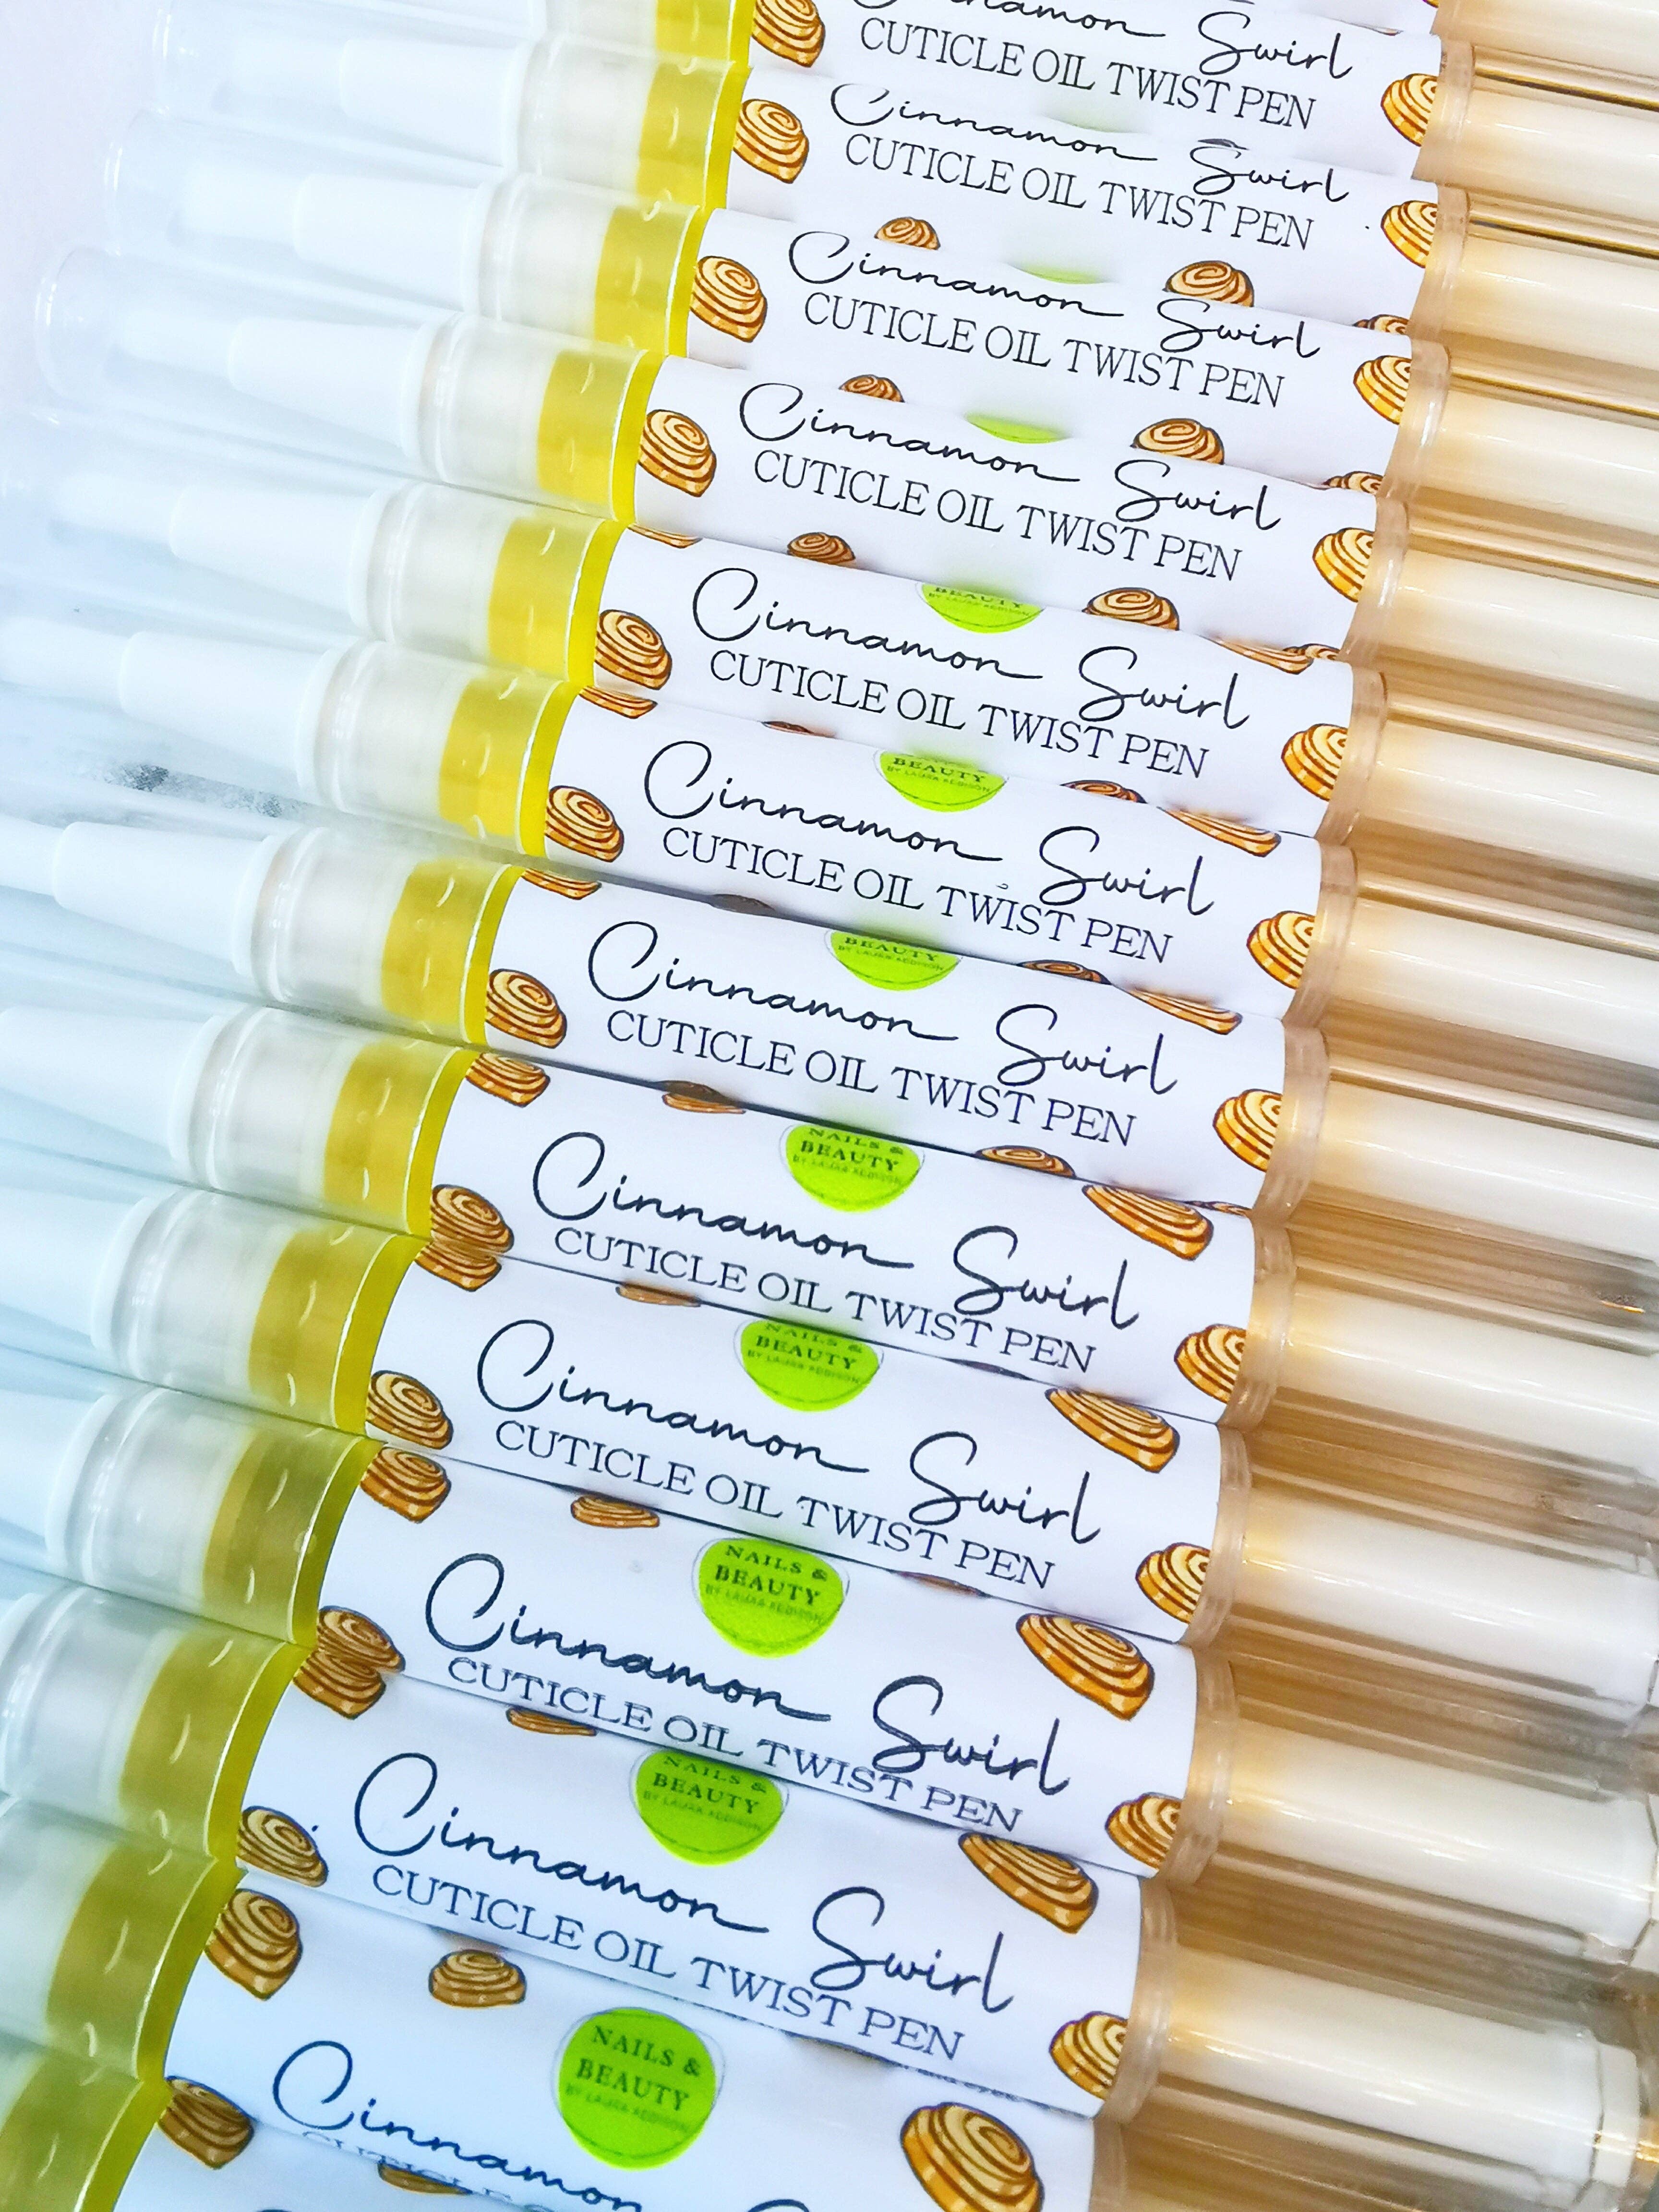 Swirl
CUTICLE OIL TWIST PEN
Cinnamon Swirl
CUTICLE OIL TWIST PEN
Cinnamon Swirl
CUTICLE OIL TWIST PEN
Cinnamon Swirl
CUTICLE OIL TWIST PEN
BEAUTY
BY LAURA ADDISON
Cinnamon Swirl
CUTICLE OIL TWIST PEN
BEAUTY
BY LAURA ADDISON
Cinnamon Swirl
CUTICLE OIL TWIST PEN
BEAUTY
BY LAURA ADDISON
Cinnamon Swirl
CUTICLE OIL TWIST PEN
NAILS &
BEAUTY
BY LAURA ADDISON
Cinnamon Swirl
CUTICLE OIL TWIST PEN
NAILS &
BEAUTY
BY LAURA ADDISON
Cinnamon Swirl
CUTICLE OIL TWIST PEN
NAILS &
BEAUTY
BY LAURA ADDISON
Cinnamon Swirl
CUTICLE OIL TWIST PEN
NAILS &
BEAUTY
BY LAURA ADDISON
Cinnamon Swirl
CUTICLE OIL TWIST PEN
NAILS &
BEAUTY
BY LAURA ADDISON
Cinnamon